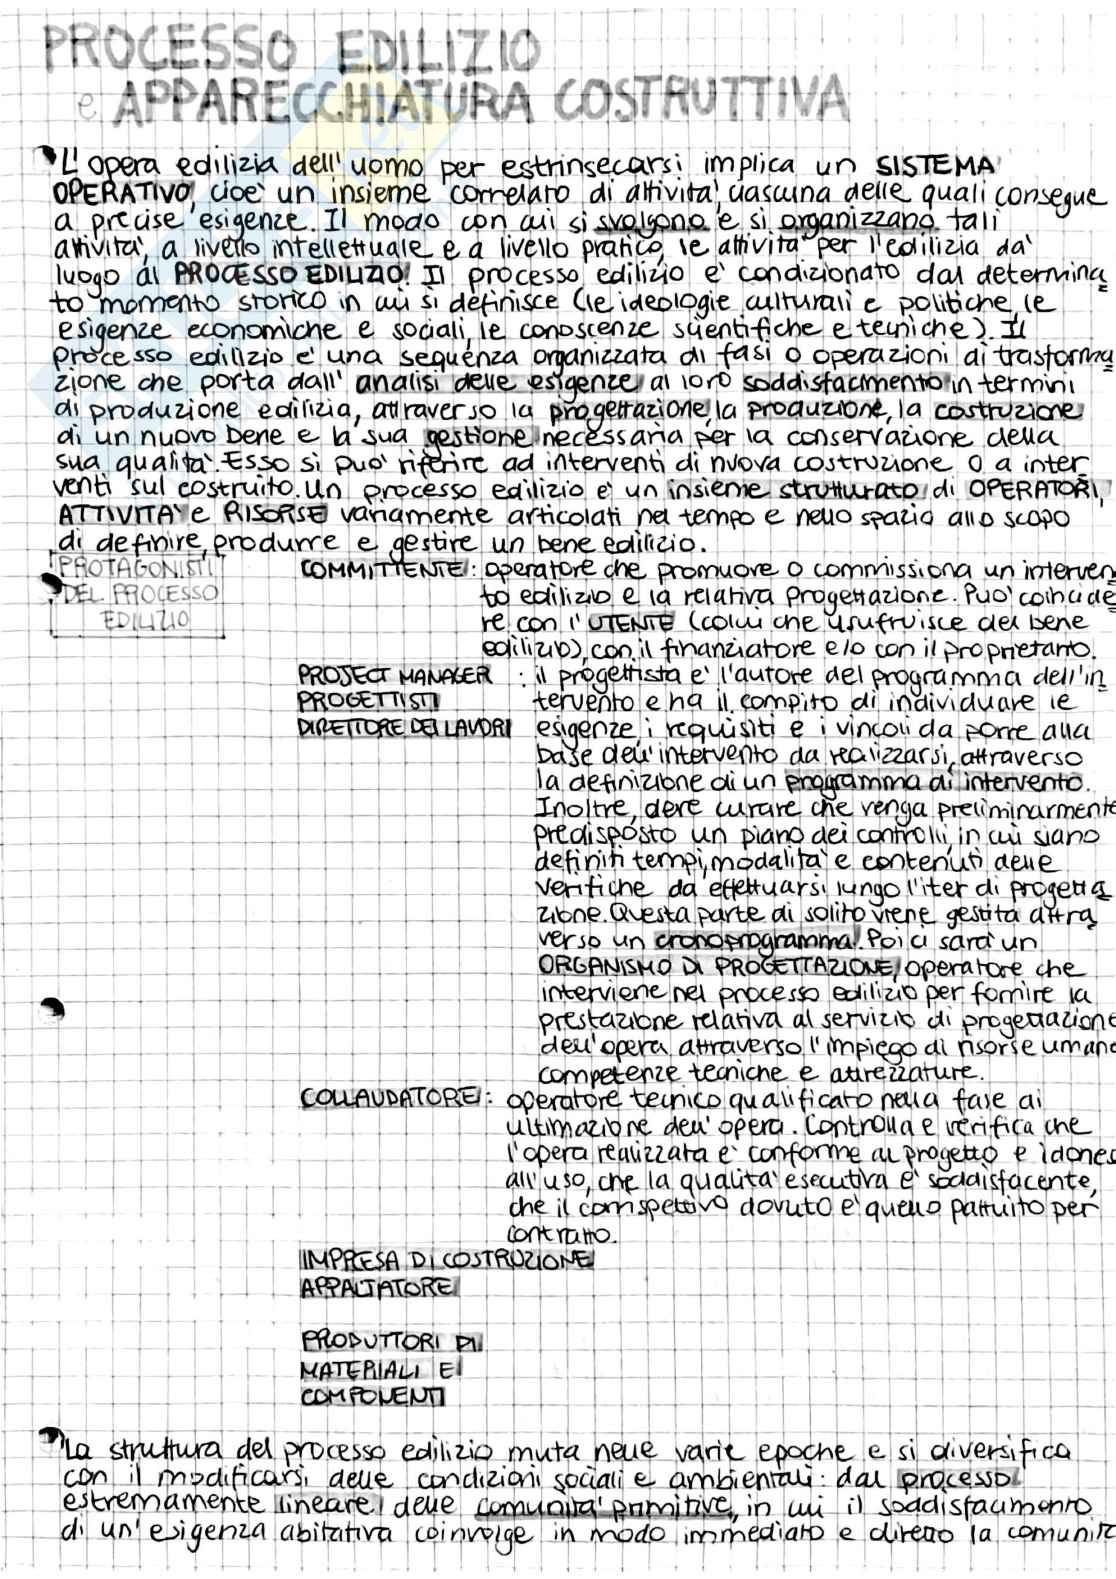 PROCESSO EDILIZIO
e APPARECCHIATURA COSTRUTTIVA
L'opera edilizia dell'uomo per estrinsecarsi implica un SISTEMA
OPERATIVO, cioè un insieme correlato di attività, ciascuna delle quali consegue
a precise esigenze. Il modo con cui si svolgono e si organizzano tali
attività, a livello intellettuale e a livello pratico, le attività per l'edilizia dà
luogo al PROCESSO EDILIZIO. Il processo edilizio è condizionato dal determina
to momento storico in cui si definisce (le ideologie culturali e politiche, le
esigenze economiche e sociali, le conoscenze scientifiche e tecniche). Il
processo edilizio è una sequenza organizzata di fasi o operazioni di trasforma
zione che porta dall'analisi delle esigenze al loro soddisfacimento in termini
di produzione edilizia, attraverso la progettazione, la produzione, la costruzione
di un nuovo bene e la sua gestione necessaria per la conservazione della
sua qualità. Esso si può riferire ad interventi di nuova costruzione o a inter
venti sul costruito. Un processo edilizio è un insieme strutturato di OPERATORI,
ATTIVITÀ e RISORSE variamente articolati nel tempo e nello spazio allo scopo
di definire, produrre e gestire un bene edilizio.
PROTAGONISTI
DEL PROCESSO
EDILIZIO
COMMITTENTE: operatore che promuove o commissiona un interven
to edilizio e la relativa progettazione. Può coincide
re con l'UTENTE (colui che usufruisce del bene
edilizio), con il finanziatore e/o con il proprietario.
PROJECT MANAGER : il progettista è l'autore del programma dell'in
PROGETTISTI tervento e ha il compito di individuare le
DIRETTORE DEI LAVORI esigenze, i requisiti e i vincoli da porre alla
base dell'intervento da realizzarsi, attraverso
la definizione di un programma di intervento.
Inoltre, deve curare che venga preliminarmente
predisposto un piano dei controlli, in cui siano
definiti tempi, modalità e contenuti delle
verifiche da effettuarsi lungo l'iter di progetta
zione. Questa parte di solito viene gestita attra
verso un cronoprogramma. Poi ci sarà un
ORGANISMO DI PROGETTAZIONE, operatore che
interviene nel processo edilizio per fornire la
prestazione relativa al servizio di progettazione
dell'opera attraverso l'impiego di risorse umane
competenze tecniche e attrezzature.
COLLAUDATORE: operatore tecnico qualificato nella fase di
ultimazione dell'opera. Controlla e verifica che
l'opera realizzata è conforme al progetto e idonea
all'uso, che la qualità esecutiva è soddisfacente,
che il corrispettivo dovuto è quello pattuito per
contratto.
IMPRESA DI COSTRUZIONE
APPALTATORE
PRODUTTORI DI
MATERIALI E
COMPONENTI
La struttura del processo edilizio muta nelle varie epoche e si diversifica
con il modificarsi delle condizioni sociali e ambientali: dal processo
estremamente lineare delle comunità primitive, in cui il soddisfacimento
di un'esigenza abitativa coinvolge in modo immediato e diretto la comunità